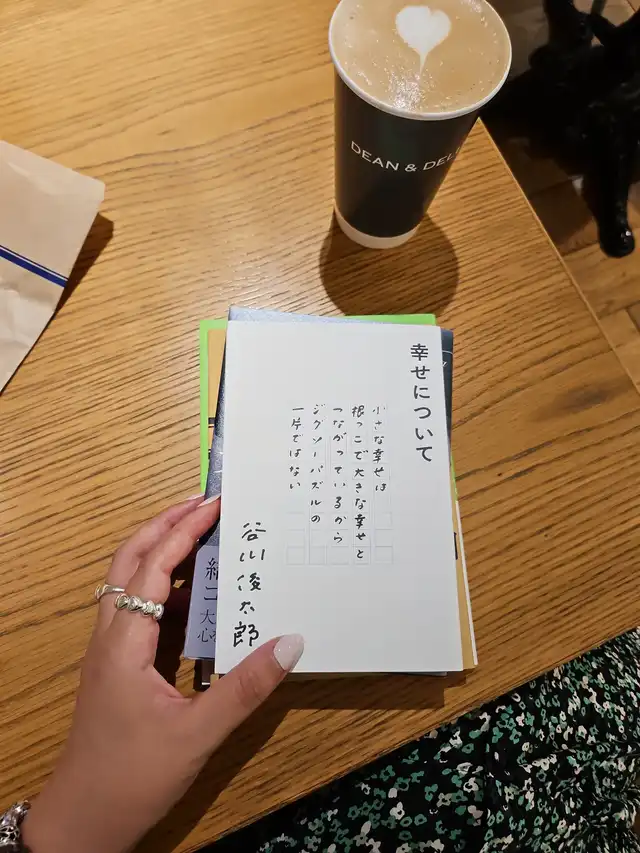 DEAN & DEL
幸せについて
小さな幸せは
根っこで大きな幸せと
つながっているから
ジグソーパズルの
一片ではない
谷川俊太郎